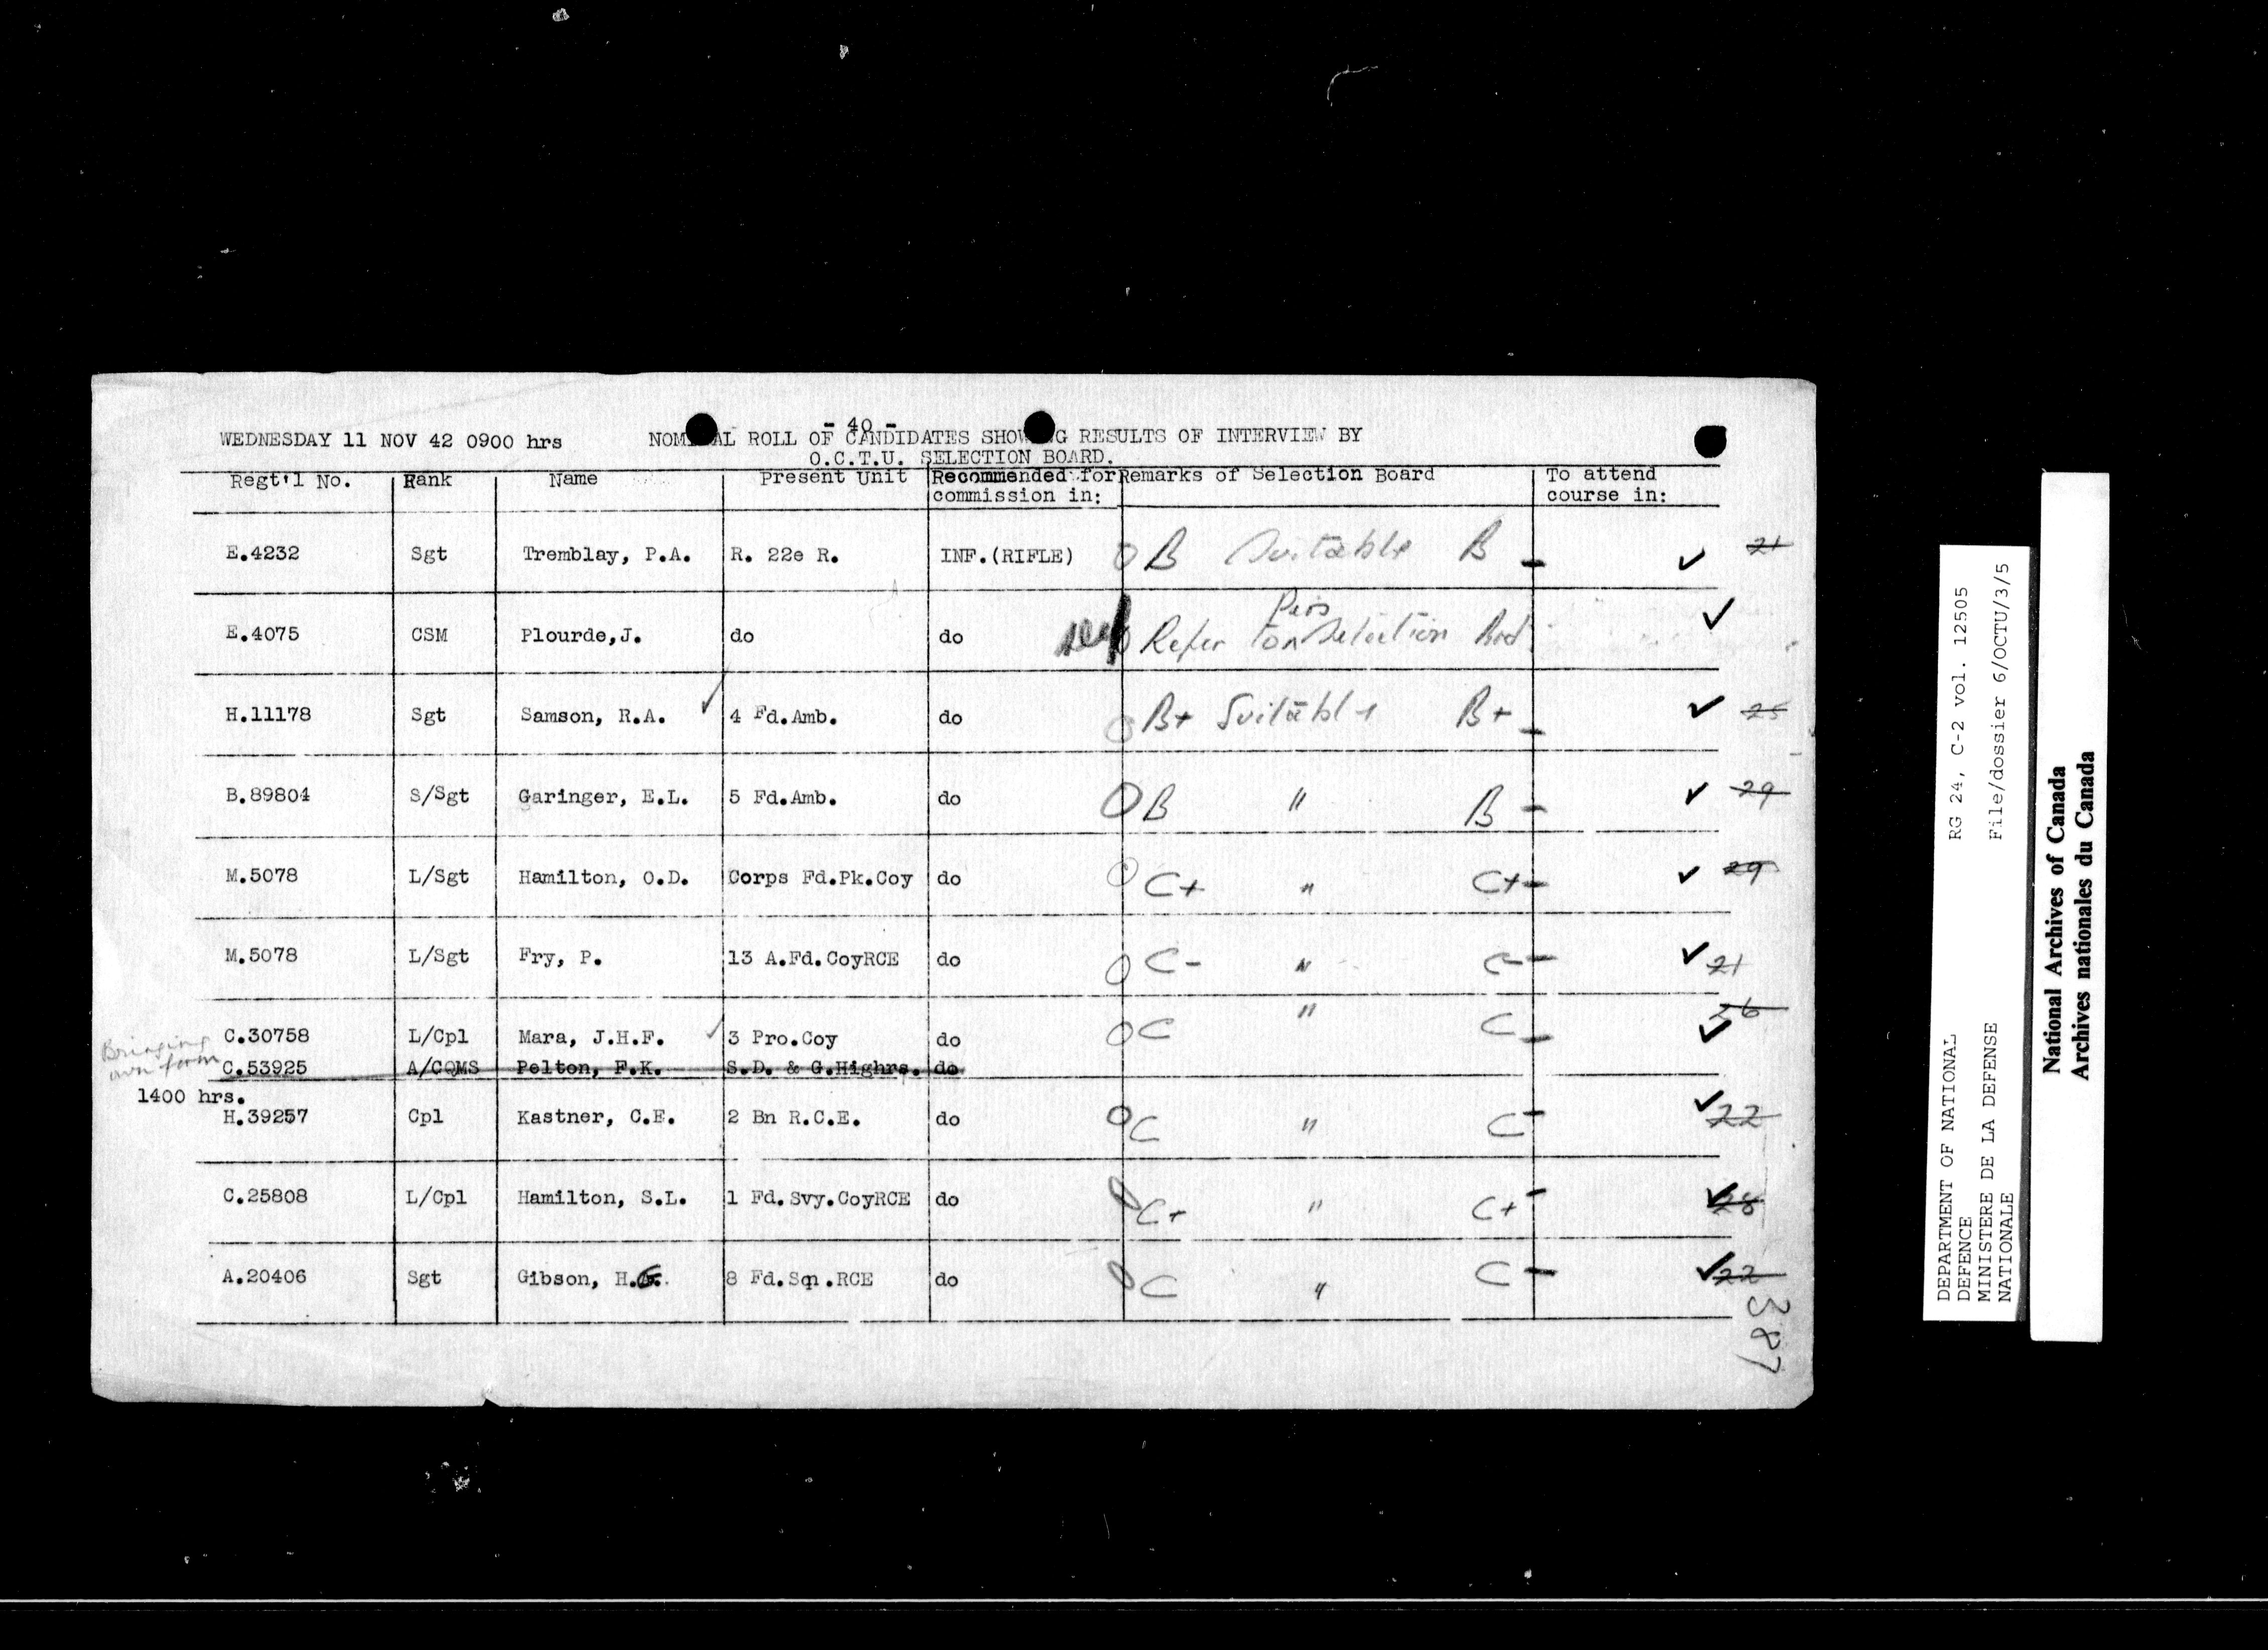 - 40 -
WEDNESDAY 11 NOV 42 0900 hrs NOMINAL ROLL OF CANDIDATES SHOWING RESULTS OF INTERVIEW BY
O.C.T.U. SELECTION BOARD.
Regt'l No. Rank Name Present Unit Recommended for commission in: Remarks of Selection Board To attend course in:
E.4232 Sgt Tremblay, P.A. R. 22e R. INF.(RIFLE) B Suitable B - ✓ 21
E.4075 CSM Plourde,J. do do Refer to Pers Selection Brd. ✓
H.11178 Sgt Samson, R.A. ✓ 4 Fd.Amb. do B+ Suitable B+ - ✓ 25
B.89804 S/Sgt Garinger, E.L. 5 Fd.Amb. do B " B - ✓ 29
M.5078 L/Sgt Hamilton, O.D. Corps Fd.Pk.Coy do C+ " C+ - ✓ 29
M.5078 L/Sgt Fry, P. 13 A.Fd.CoyRCE do C- " C- - ✓ 21
C.30758 L/Cpl Mara, J.H.F. ✓ 3 Pro.Coy do C " C - ✓ 26
Bringing own form
C.53925 A/CQMS Pelton, F.K. S.D. & G.Highrs. do
1400 hrs.
H.39257 Cpl Kastner, C.F. 2 Bn R.C.E. do C " C - ✓ 22
C.25808 L/Cpl Hamilton, S.L. 1 Fd.Svy.CoyRCE do C+ " C+ - ✓ 28
A.20406 Sgt Gibson, H.G. 8 Fd.Sqn.RCE do C " C - ✓ 22
387
DEPARTMENT OF NATIONAL
DEFENCE
MINISTERE DE LA DEFENSE
NATIONALE
RG 24, C-2 vol. 12505
File/dossier 6/OCTU/3/5
National Archives of Canada
Archives nationales du Canada